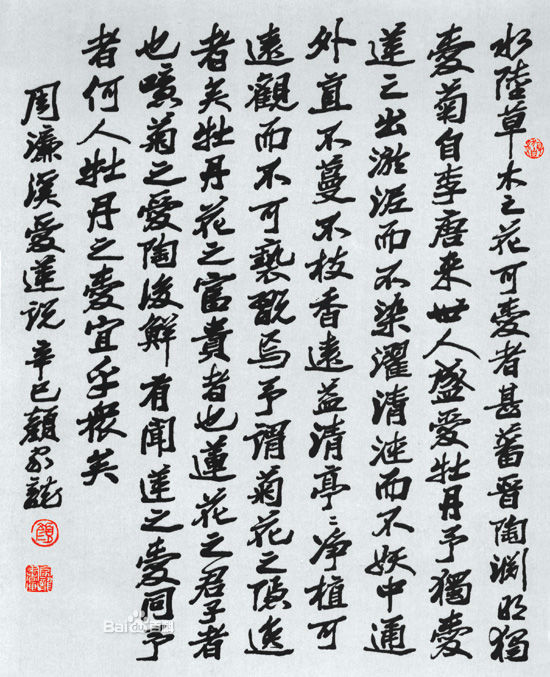 水陸草木之花可愛者甚蕃晉陶渊明獨
愛菊自李唐来世人盛愛牡丹予獨愛
蓮之出淤泥而不染濯清漣而不妖中通
外直不蔓不枝香遠益清亭〻净植可
遠觀而不可褻翫焉予謂菊花之隱逸
者矣牡丹花之富貴者也蓮花之君子者
也噫菊之愛陶後鮮有聞蓮之愛同予
者何人牡丹之愛宜乎眾矣
周濂溪愛蓮说 辛巳顧家龍